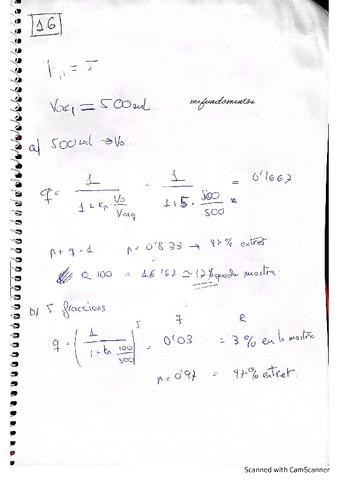 16
Kn = 5
Vaq = 500 ml
msfundamentos
a) 500 ml → Vo
q = 1 / (1 + Kn · Vo/Vaq) = 1 / (1 + 5 · 500/500) = 0'1667
p + q = 1 p = 0'833 →
Q · 100 = 16'67 ≃ 17% queda mostra
b) 5 fraccions
q = (1 / (1 + Kn 100/500))^5 = 0'03 = 3% en la mostra
p = 0'97 = 97% extret.
Scanned with CamScanner